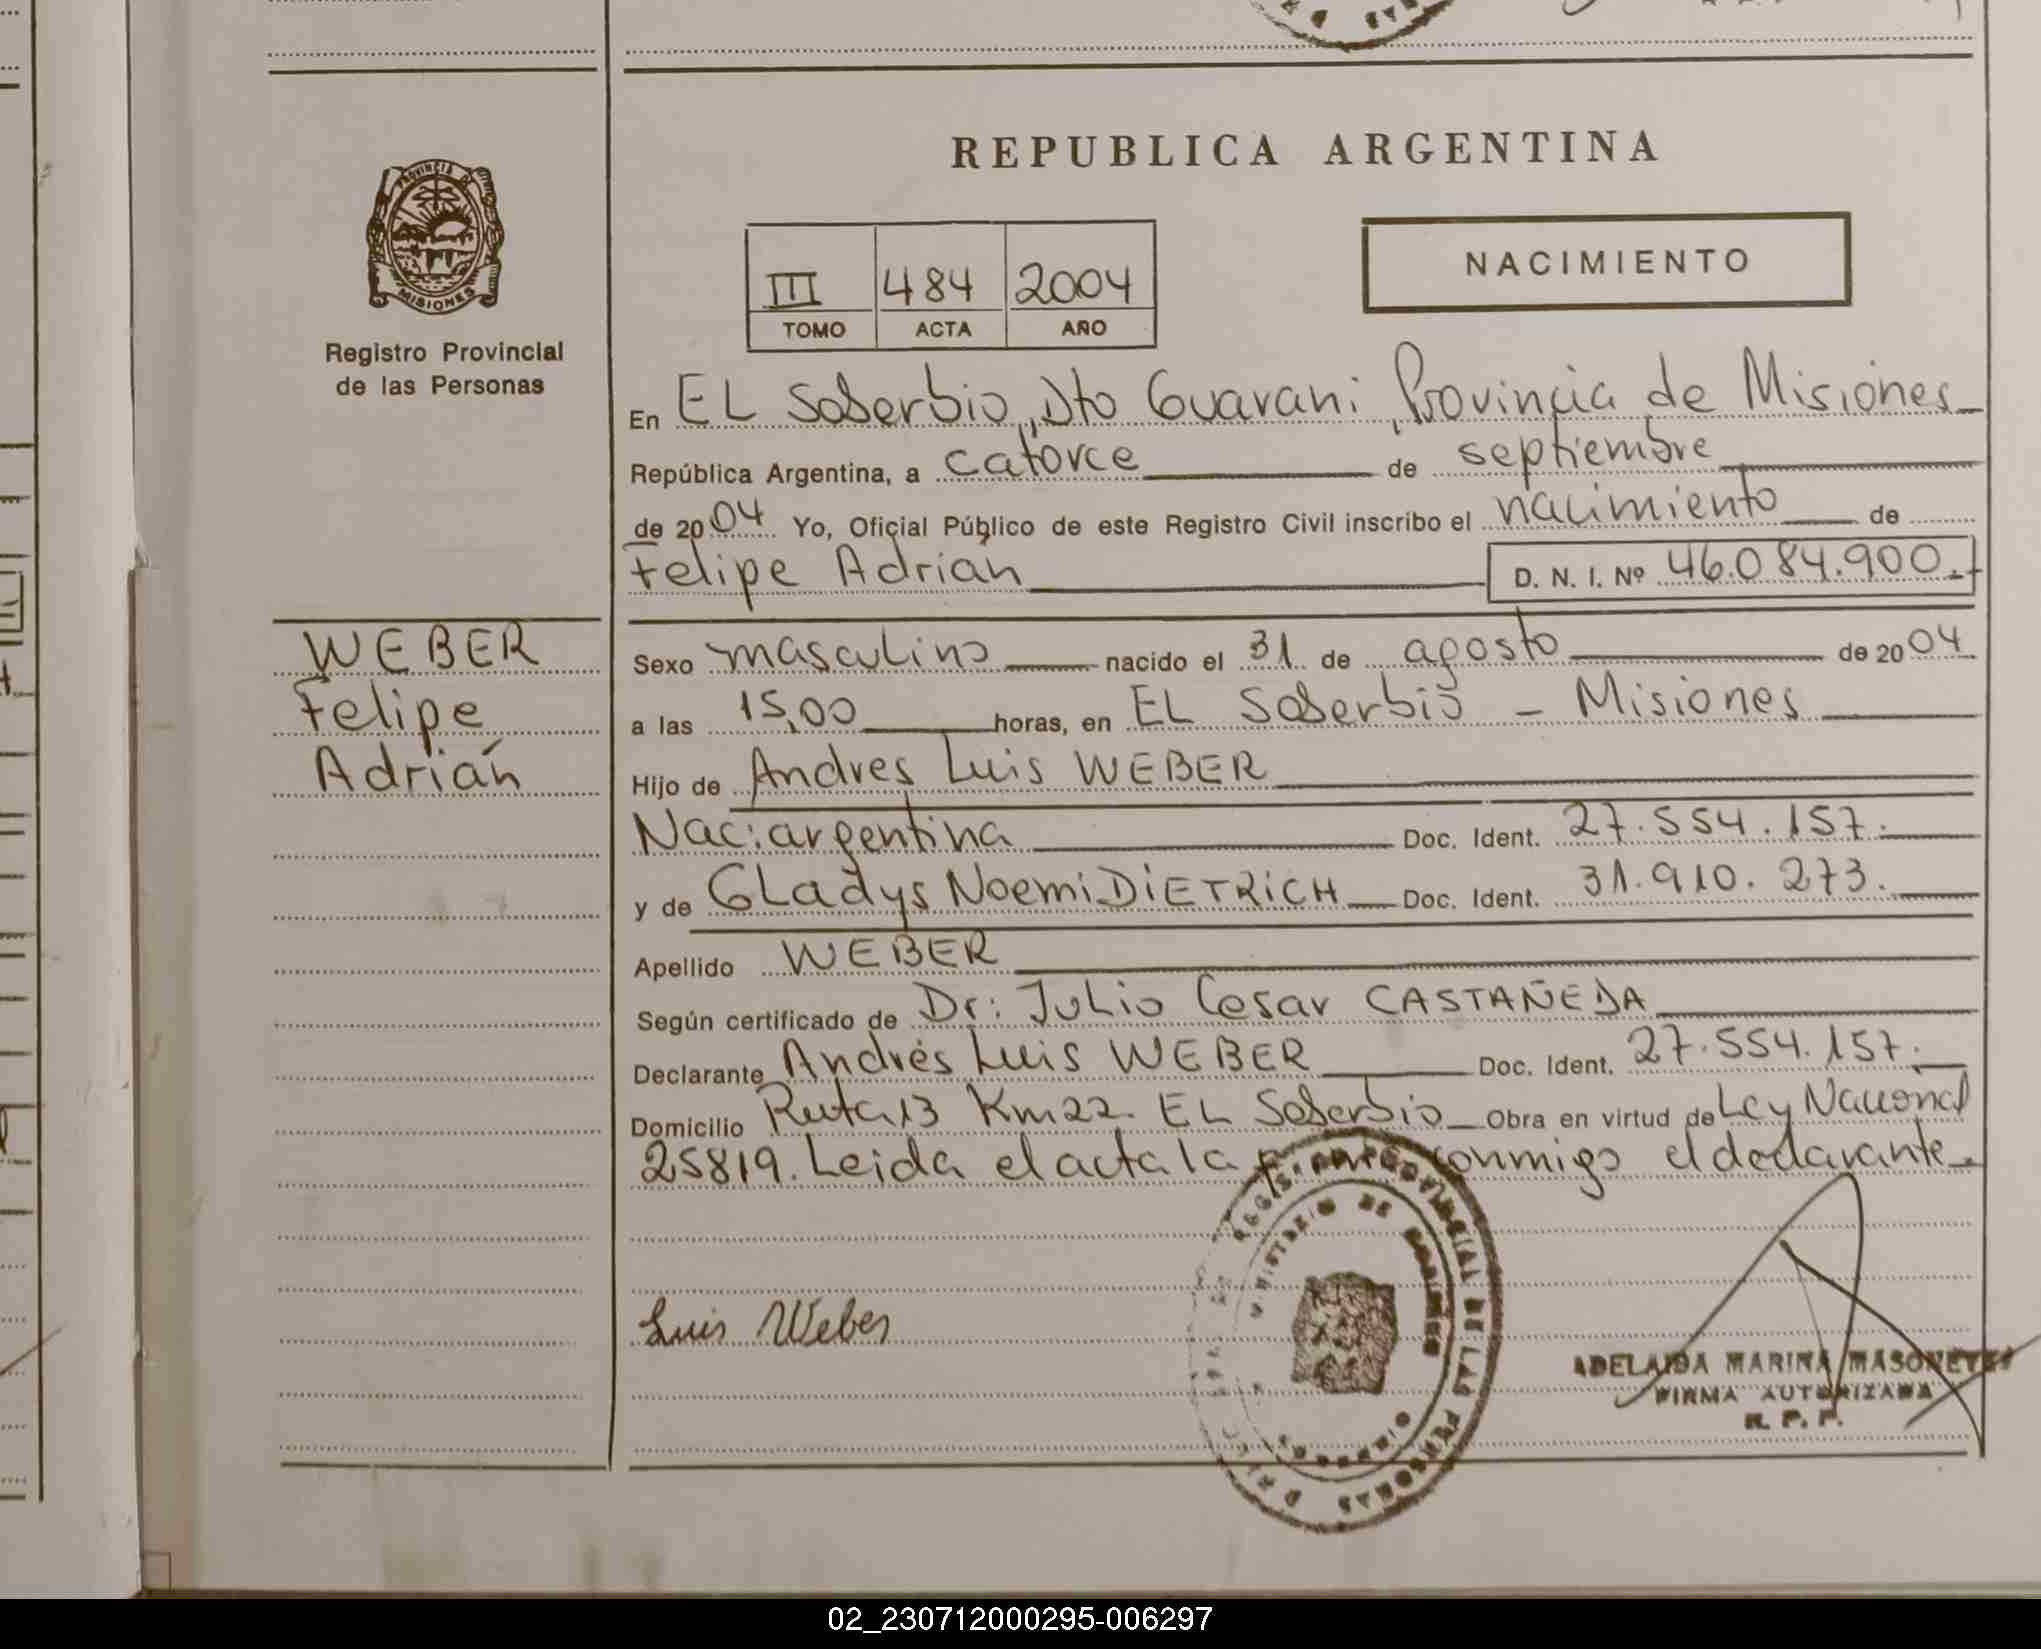 REPUBLICA ARGENTINA
PROVINCIA DE
MISIONES
Registro Provincial
de las Personas
III 484 2004
TOMO ACTA AÑO
NACIMIENTO
En EL Soberbio, Dto Guarani, Provincia de Misiones
República Argentina, a catorce de septiembre
de 2004 Yo, Oficial Público de este Registro Civil inscribo el nacimiento de
Felipe Adrián D. N. I. Nº 46.084.900.-
WEBER
Felipe
Adrián
Sexo masculino nacido el 31 de agosto de 2004
a las 15,00 horas, en EL Soberbio - Misiones
Hijo de Andres Luis WEBER
Nac: argentina Doc. Ident. 27.554.157.
y de GLadys Noemi DiETRiCH Doc. Ident. 31.910.273.
Apellido WEBER
Según certificado de Dr: Julio Cesar CASTAÑEDA
Declarante Andrés Luis WEBER Doc. Ident. 27.554.157.
Domicilio Ruta 13 Km 22. EL Soberbio Obra en virtud de Ley Nacional
25819. Leida el acta la conmigo el declarante.
REGISTRO PROVINCIAL DE LAS PERSONAS
MINISTERIO DE GOBIERNO
Luis Weber
ADELAIDA MARINA
FIRMA AUTORIZADA
R. P. P.
02_230712000295-006297